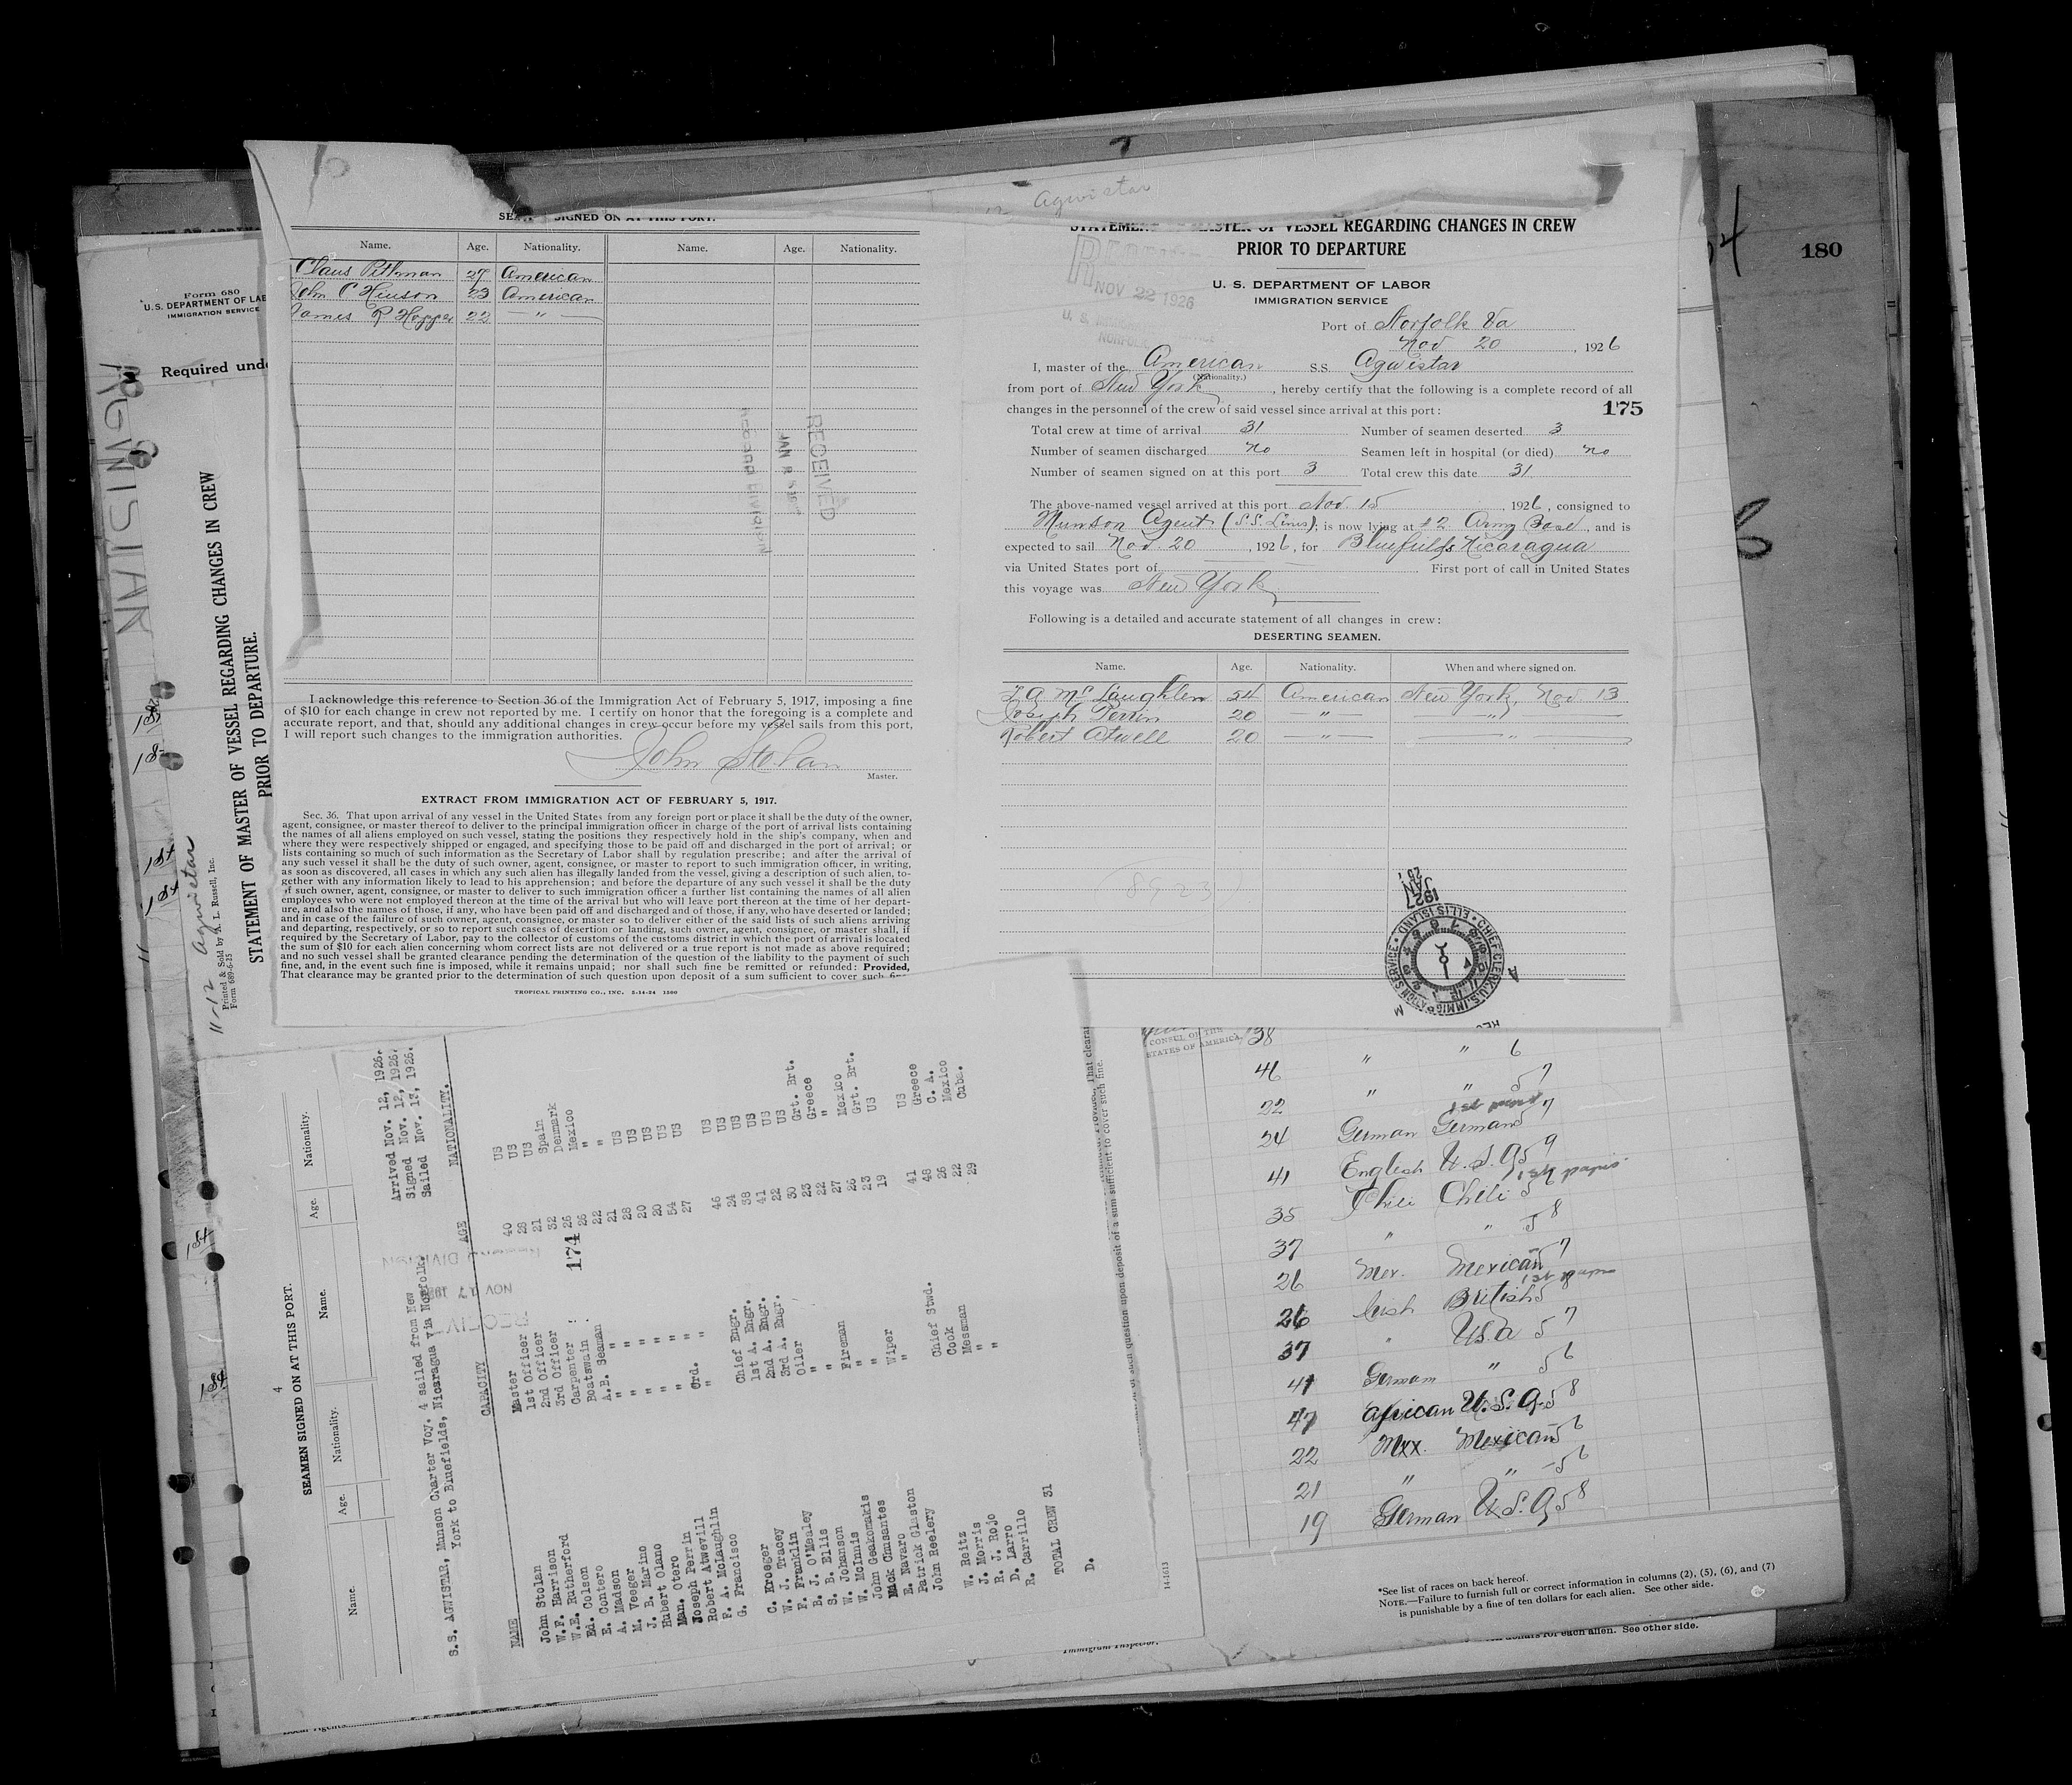 Agwistar
SEAMEN SIGNED ON AT THIS PORT.
Name. Age. Nationality. Name. Age. Nationality.
Claus Pittman 27 American
John C Hinson 23 American
James R Hopper 22 "
RECEIVED
JAN
RECORD DIVISION
I acknowledge this reference to Section 36 of the Immigration Act of February 5, 1917, imposing a fine
of $10 for each change in crew not reported by me. I certify on honor that the foregoing is a complete and
accurate report, and that, should any additional changes in crew occur before my vessel sails from this port,
I will report such changes to the immigration authorities.
John Stolan
Master.
EXTRACT FROM IMMIGRATION ACT OF FEBRUARY 5, 1917.
Sec. 36. That upon arrival of any vessel in the United States from any foreign port or place it shall be the duty of the owner,
agent, consignee, or master thereof to deliver to the principal immigration officer in charge of the port of arrival lists containing
the names of all aliens employed on such vessel, stating the positions they respectively hold in the ship's company, when and
where they were respectively shipped or engaged, and specifying those to be paid off and discharged in the port of arrival; or
lists containing so much of such information as the Secretary of Labor shall by regulation prescribe; and after the arrival of
any such vessel it shall be the duty of such owner, agent, consignee, or master to report to such immigration officer, in writing,
as soon as discovered, all cases in which any such alien has illegally landed from the vessel, giving a description of such alien, to-
gether with any information likely to lead to his apprehension; and before the departure of any such vessel it shall be the duty
of such owner, agent, consignee, or master to deliver to such immigration officer a further list containing the names of all alien
employees who were not employed thereon at the time of the arrival but who will leave port thereon at the time of her depart-
ure, and also the names of those, if any, who have been paid off and discharged and of those, if any, who have deserted or landed;
and in case of the failure of such owner, agent, consignee, or master so to deliver either of the said lists of such aliens arriving
and departing, respectively, or so to report such cases of desertion or landing, such owner, agent, consignee, or master, shall, if
required by the Secretary of Labor, pay to the collector of customs of the customs district in which the port of arrival is located
the sum of $10 for each alien concerning whom correct lists are not delivered or a true report is not made as above required;
and no such vessel shall be granted clearance pending the determination of the question of the liability to the payment of such
fine, and, in the event such fine is imposed, while it remains unpaid; nor shall such fine be remitted or refunded: Provided,
That clearance may be granted prior to the determination of such question upon deposit of a sum sufficient to cover such fine.
TROPICAL PRINTING CO., INC. 5-14-24 1500
STATEMENT OF MASTER OF VESSEL REGARDING CHANGES IN CREW
PRIOR TO DEPARTURE
U. S. DEPARTMENT OF LABOR
IMMIGRATION SERVICE
NOV 22 1926
NORFOLK
Port of Norfolk Va
Nov 20, 1926
I, master of the American S.S. Agwistar
(Nationality.)
from port of New York, hereby certify that the following is a complete record of all
changes in the personnel of the crew of said vessel since arrival at this port:
175
Total crew at time of arrival 31 Number of seamen deserted 3
Number of seamen discharged no Seamen left in hospital (or died) no
Number of seamen signed on at this port 3 Total crew this date 31
The above-named vessel arrived at this port Nov. 15, 1926, consigned to
Munson Agent (S.S. Lines), is now lying at #2 Army Base, and is
expected to sail Nov. 20, 1926, for Bluefields Nicaragua
via United States port of First port of call in United States
this voyage was New York
Following is a detailed and accurate statement of all changes in crew:
DESERTING SEAMEN.
Name. Age. Nationality. When and where signed on.
F A McLaughlin 54 American New York, Nov 13
Joseph Perrin 20 " "
Robert Atwell 20 " "
1927
JAN
CHIEF CLERK, U.S. IMMIGRATION SERVICE • ELLIS ISLAND
180
Form 680
U. S. DEPARTMENT OF LAB
IMMIGRATION SERVICE
Required unde
AGWISTAR
11-12 Agwistar
Printed & Sold by R. L. Russell, Inc.
Form 689-6-25
STATEMENT OF MASTER OF VESSEL REGARDING CHANGES IN CREW
PRIOR TO DEPARTURE.
4
SEAMEN SIGNED ON AT THIS PORT.
Name. Age. Nationality. Name. Age. Nationality.
S.S. AGWISTAR, Munson Charter Voy. 4 sailed from New Arrived Nov. 12, 1926.
York to Bluefields, Nicaragua via Norfolk. Signed Nov. 12, 1926.
Sailed Nov. 13, 1926.
NAME CAPACITY AGE NATIONALITY.
John Stolan Master 40 US
W.F. Harrison 1st Officer 28 US
W.E. Rutherford 2nd Officer 21 US
Ed. Colson 3rd Officer 32 Spain
E. Contero Carpenter 26 Denmark
A. Madson Boatswain 26 Mexico
M. Veeger A.B. Seaman 22 "
J. B. Marino " 21 "
Hubert Olano " 28 US
Man. Otero " 20 US
Joseph Perrin " 20 US
Robert Atwevill " 54 US
F. A. McLaughlin Ord. " 27 US
G. Francisco "
C. Kroeger Chief Engr. 46 US
W. J. Tracey 1st A. Engr. 24 US
F. Franklin 2nd A. Engr. 38 US
B. J. O'Mealey 3rd A. Engr. 41 US
S. B. Ellis Oiler 22 US
W. Johanson " 30 US
W. McInnis " 23 Grt. Brt.
John Geakomakis Fireman 22 Greece
Mick Chusantes " 27 "
E. Navaro " 26 Mexico
Patrick Glaston Wiper 23 Grt. Brt.
John Reelery " 19 US
W. Reitz Chief Stwd. 41 US
J. Morris Cook 48 Greece
R. J. Rojo Messman 26 C. A.
D. Larro " 22 Mexico
R. Carrillo " 29 Cuba.
TOTAL CREW 31
D.
174
NOV 17
14-1613
Immigrant Inspector.
CONSUL OF THE
STATES OF AMERICA
38
46 " " 6
22 " " 5 7
24 German German 5 7
41 English U.S.A 5 9
35 Chili Chili 5
37 " " 5 8
26 Mex. Mexican 5 7
26 Irish British 5 8
37 " USA 5 7
41 German " 5 6
47 African U.S.A. 5 8
22 Mex. Mexican 5 6
21 " " 5 6
19 German U.S.A 5 8
*See list of races on back hereof.
NOTE.—Failure to furnish full or correct information in columns (2), (5), (6), and (7)
is punishable by a fine of ten dollars for each alien. See other side.
dollars for each alien. See other side.